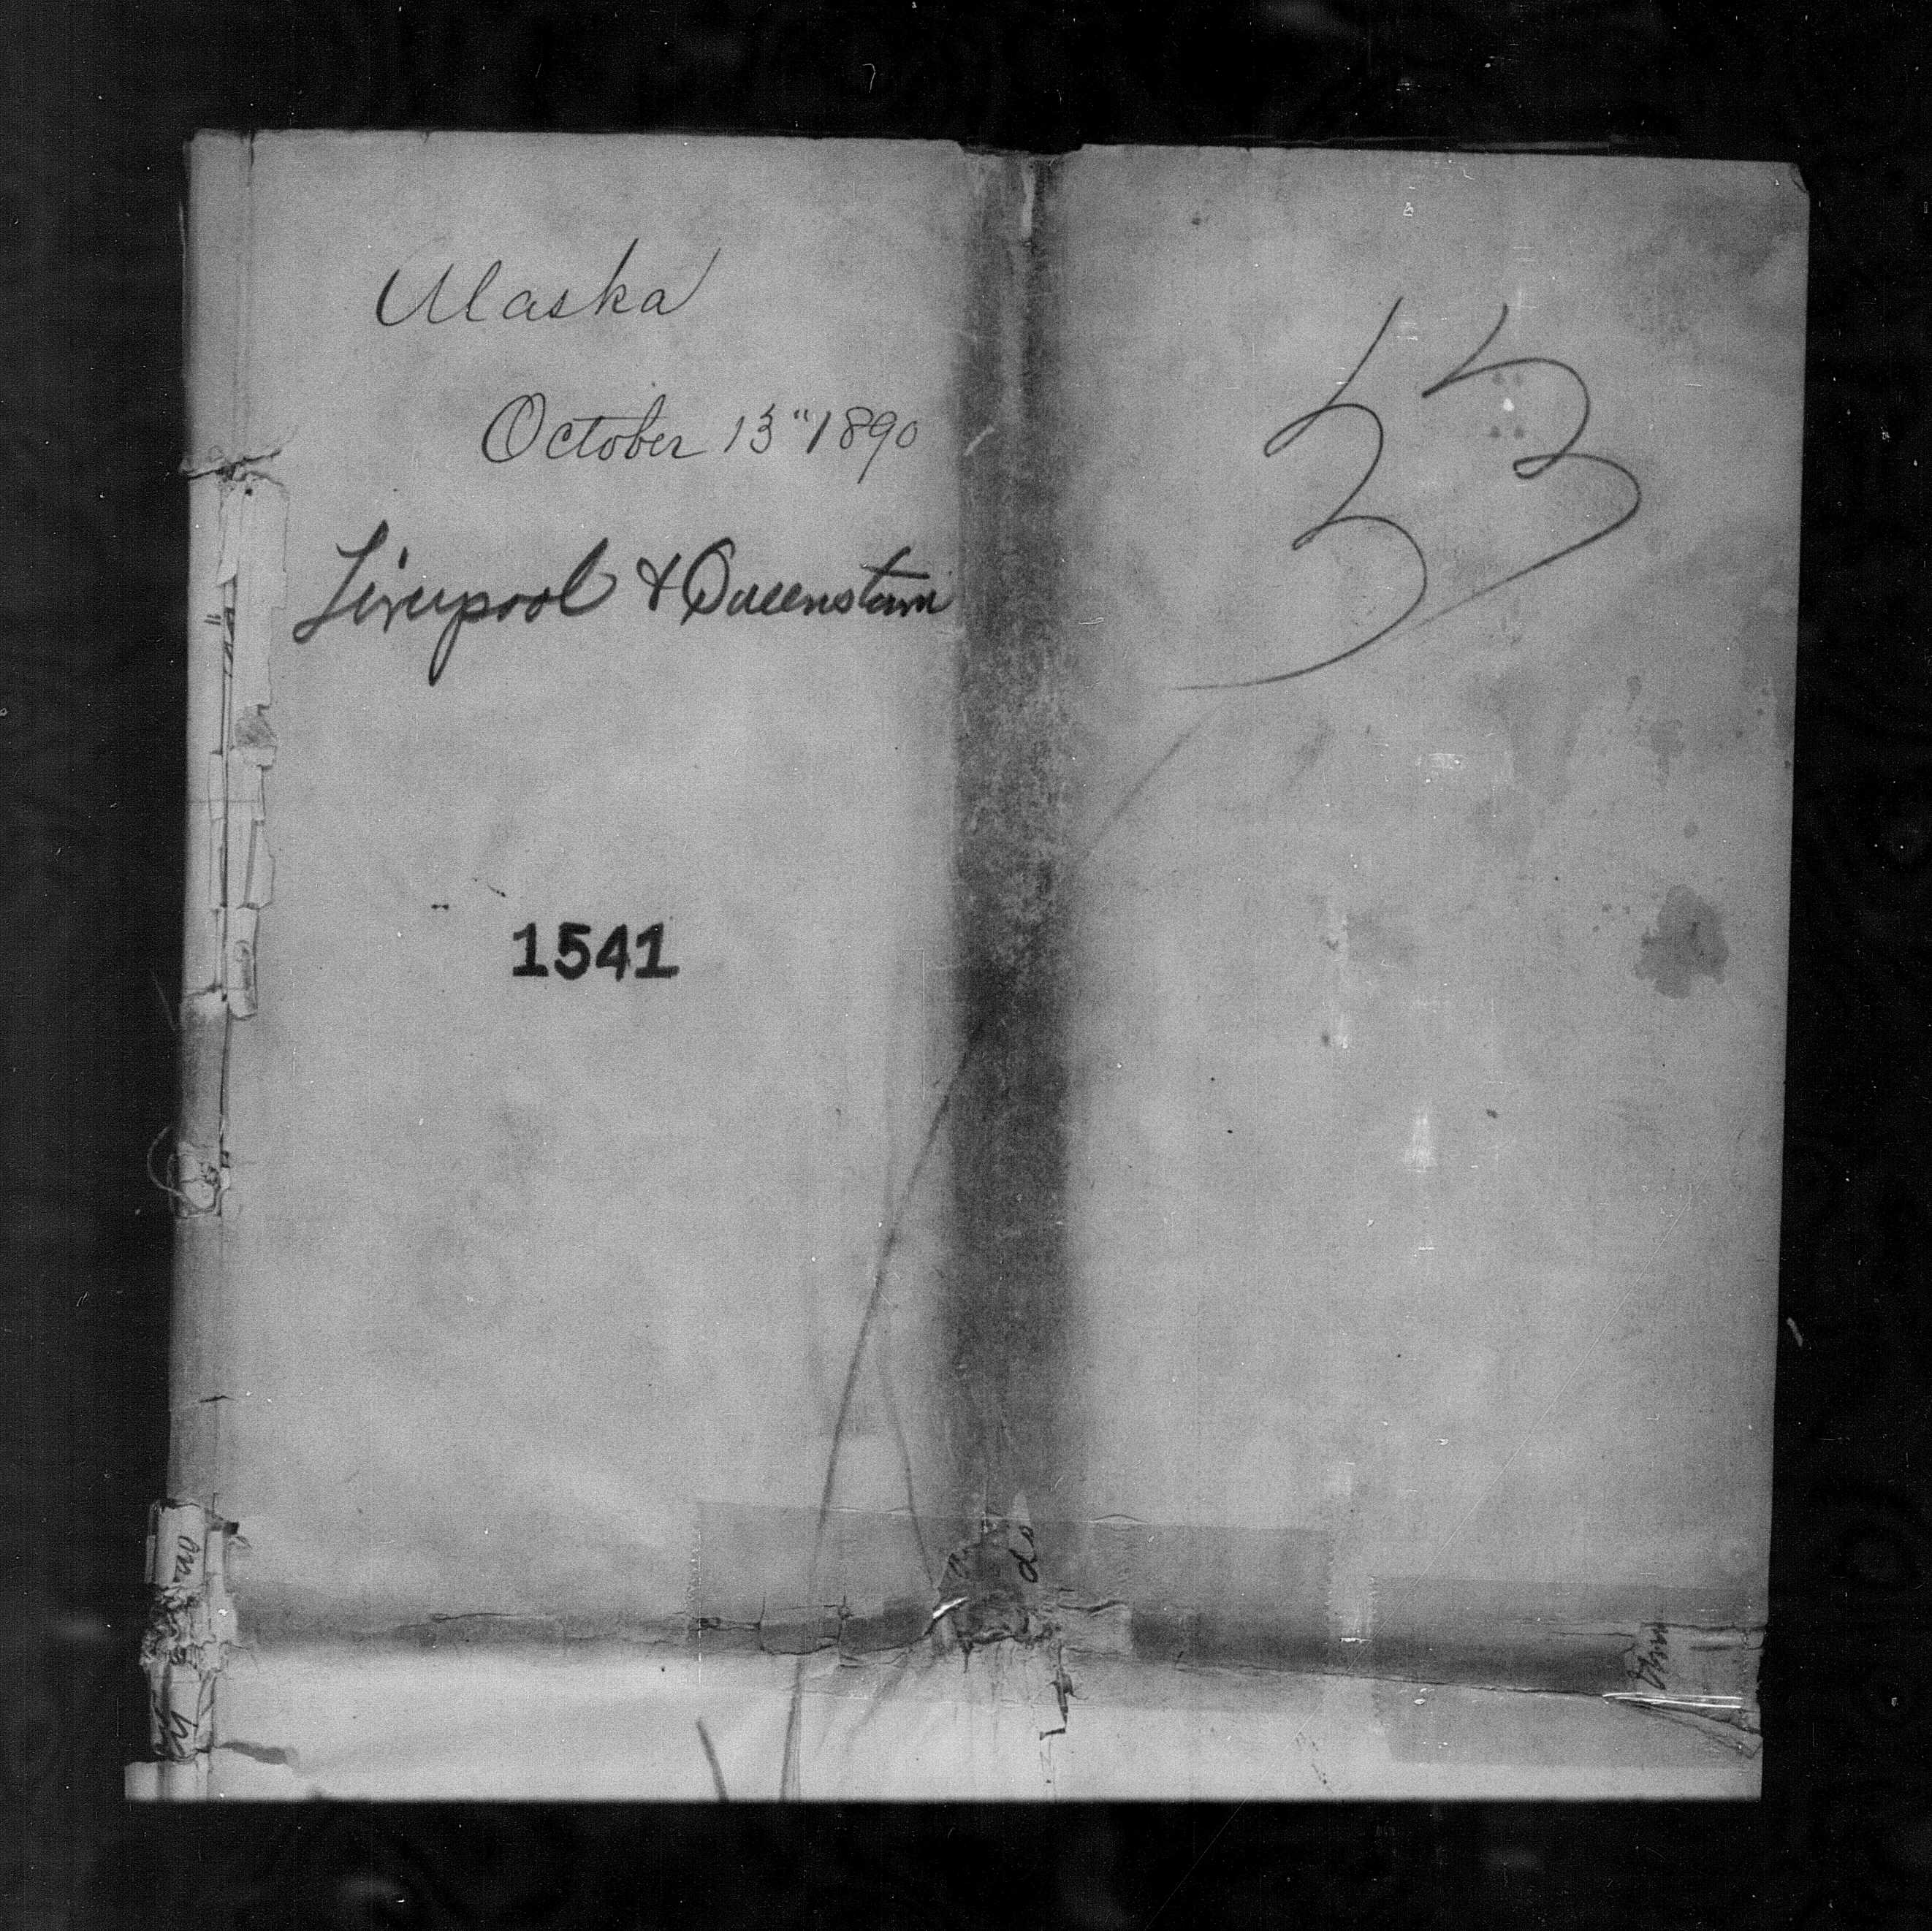 Alaska
October 13" 1890
Liverpool & Queenstown
1541
33
do